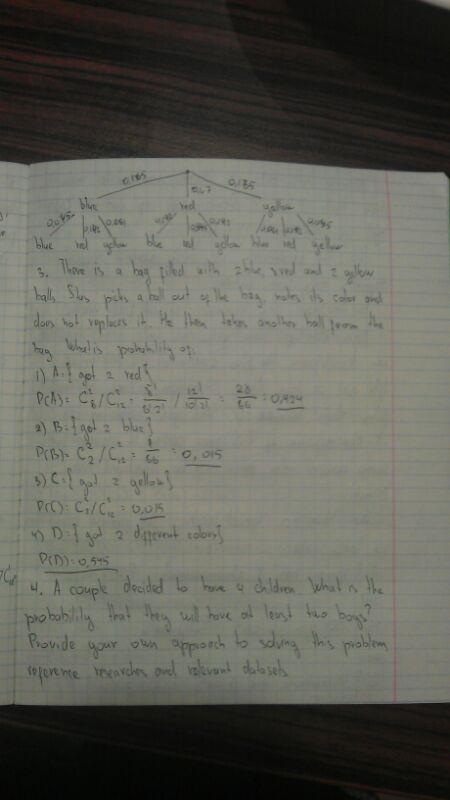 0,185 0,67 0,185
blue red yellow
blue red yellow blue red yellow blue red yellow
3. There is a bag filled with 2 blue, 8 red and 2 yellow
balls. Stas picks a ball out of the bag, notes its color and
does not replaces it. He then takes another ball from the
bag. What is probability of:
1) A={got 2 red}
P(A)= C₈²/C₁₂² = 8!/6!2! / 12!/10!2! = 28/66 = 0,424
2) B={got 2 blue}
P(B)= C₂²/C₁₂² = 1/66 = 0,015
3) C={got 2 yellow}
P(C)= C₂²/C₁₂² = 0,015
4) D={got 2 different colors}
P(D)=0,545
4. A couple decided to have 4 children. What is the
probability that they will have at least two boys?
Provide your own approach to solving this problem
reference researches and relevant datasets